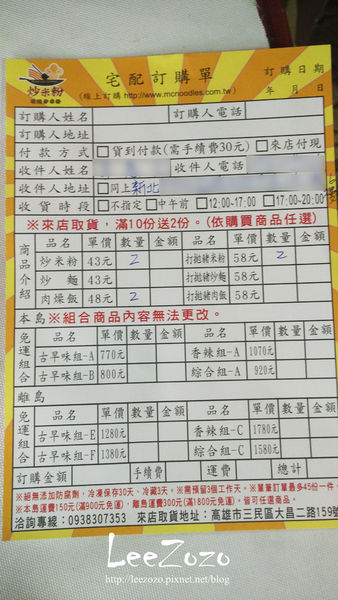 炒米粉
宅配訂購單
(線上訂購 http://www.mcnoodles.com.tw)
訂購日期
年 月 日
訂購人姓名 訂購人電話
訂購人地址
付款方式 □貨到付款(需手續費30元) □來店付現
收件人姓名 收件人電話
收件人地址 □同上 新北
收貨時段 □不指定 □中午前 □12:00-17:00 □17:00-20:00
※來店取貨,滿10份送2份。(依購買商品任選)
商品介紹
品名 單價 數量 金額 品名 單價 數量 金額
炒米粉 43元 2 打拋豬米粉 58元 2
炒麵 43元 打拋豬炒麵 58元
肉燥飯 48元 2 打拋豬肉飯 58元
本島 ※組合商品內容無法更改。
免運組合
品名 單價 數量 金額 品名 單價 數量 金額
古早味組-A 770元 香辣組-A 1070元
古早味組-B 800元 綜合組-A 920元
離島
免運組合
品名 單價 數量 金額 品名 單價 數量 金額
古早味組-E 1280元 香辣組-C 1780元
古早味組-F 1380元 綜合組-C 1580元
訂購金額 手續費 運費 總計
※組無添加防腐劑,冷凍保存30天、冷藏3天。※需預留3個工作天。※單筆訂單最多45份一件。
※本島運費150元(滿900元免運),離島運費300元(滿1800元免運)。皆可任選商品。
洽詢專線:0938307353 來店取貨地址:高雄市三民區大昌二路159號
LeeZozo
http://leezozo.pixnet.net/blog